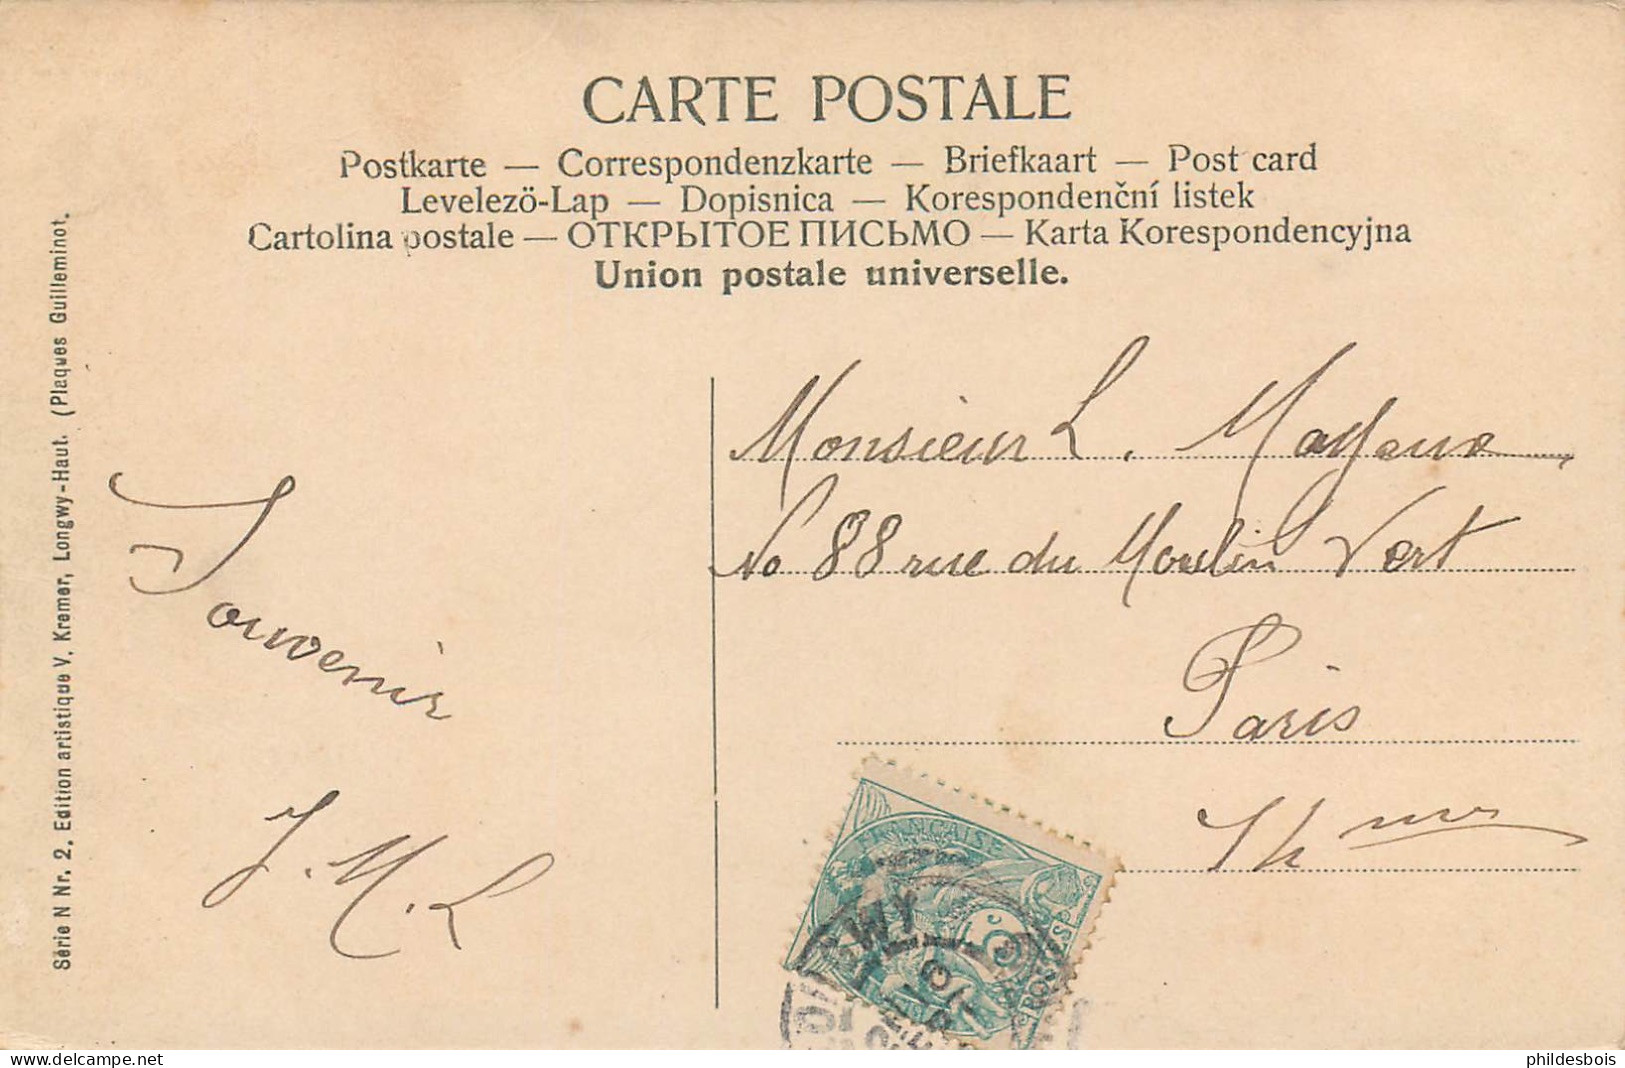 CARTE POSTALE
Postkarte — Correspondenzkarte — Briefkaart — Post card
Levelezö-Lap — Dopisnica — Korespondenční listek
Cartolina postale — ОТКРЫТОЕ ПИСЬМО — Karta Korespondencyjna
Union postale universelle.
Série N Nr. 2, Edition artistique V. Kremer, Longwy-Haut. (Plaques Guilleminot.
Souvenir
J. M. L
Monsieur L. Mayaux
No 88 rue du Moulin Vert
Paris
14 me
FRANÇAISE
5c
POSTES
GWY
phildesbois